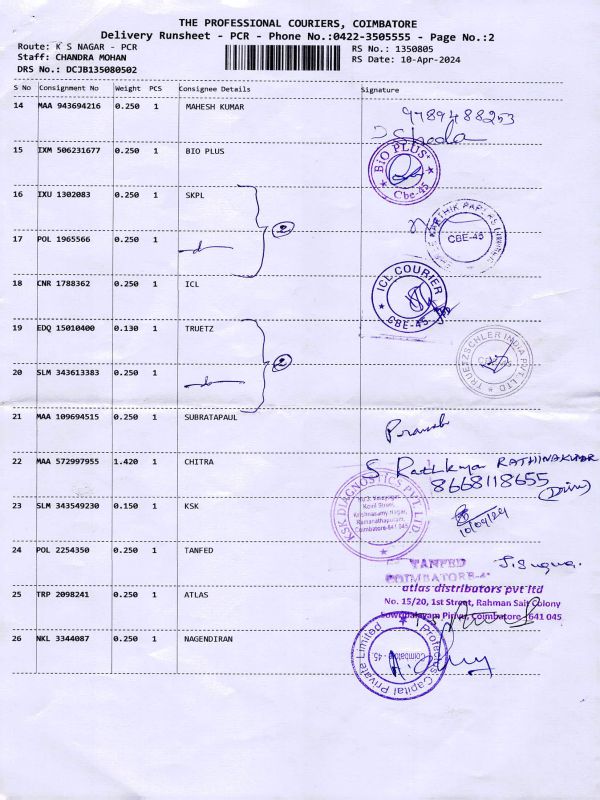 THE PROFESSIONAL COURIERS, COIMBATORE
Delivery Runsheet - PCR - Phone No.:0422-3505555 - Page No.:2
Route: K S NAGAR - PCR
RS No.: 1350805
Staff: CHANDRA MOHAN
RS Date: 10-Apr-2024
DRS No.: DCJB135080502
S No Consignment No Weight PCS Consignee Details Signature
14 MAA 943694216 0.250 1 MAHESH KUMAR
9789488253
15 IXM 506231677 0.250 1 BIO PLUS
BIO PLUS
Cbe-45
16 IXU 1302083 0.250 1 SKPL
2
CBE-45
17 POL 1965566 0.250 1
18 CNR 1788362 0.250 1 ICL
ICL COURIER
CBE-45
19 EDQ 15010400 0.130 1 TRUETZ
2
TRUETZSCHLER INDIA PVT LTD
20 SLM 343613383 0.250 1
21 MAA 109694515 0.250 1 SUBRATAPAUL
22 MAA 572997955 1.420 1 CHITRA
RATHINAKUMAR
8668118655
23 SLM 343549230 0.150 1 KSK
KSK DIAGNOSTICS PVT LTD
Kovil Street,
Krishnasamy Nagar,
Ramanathapuram,
Coimbatore-641 045
10/04/24
24 POL 2254350 0.250 1 TANFED
TANFED
COIMBATORE-4
25 TRP 2098241 0.250 1 ATLAS
atlas distributors pvt ltd
No. 15/20, 1st Street, Rahman Sait Colony
Coimbatore - 641 045
26 NKL 3344087 0.250 1 NAGENDIRAN
Capital Private Limited
Coimbatore - 45